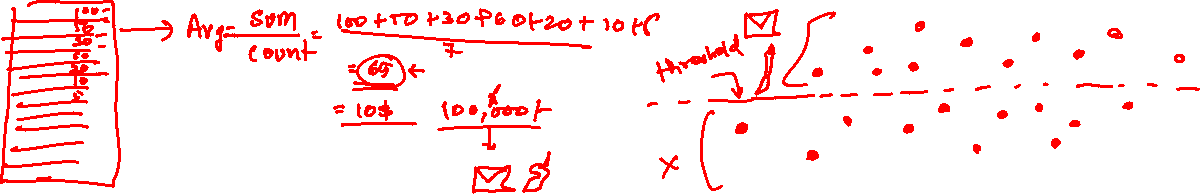 100
50
30
60
20
10
Avg = sum / count = 100+50+30+60+20+10+8 / 7
= 65 ←
= 10$ 100,000+
threshold
x